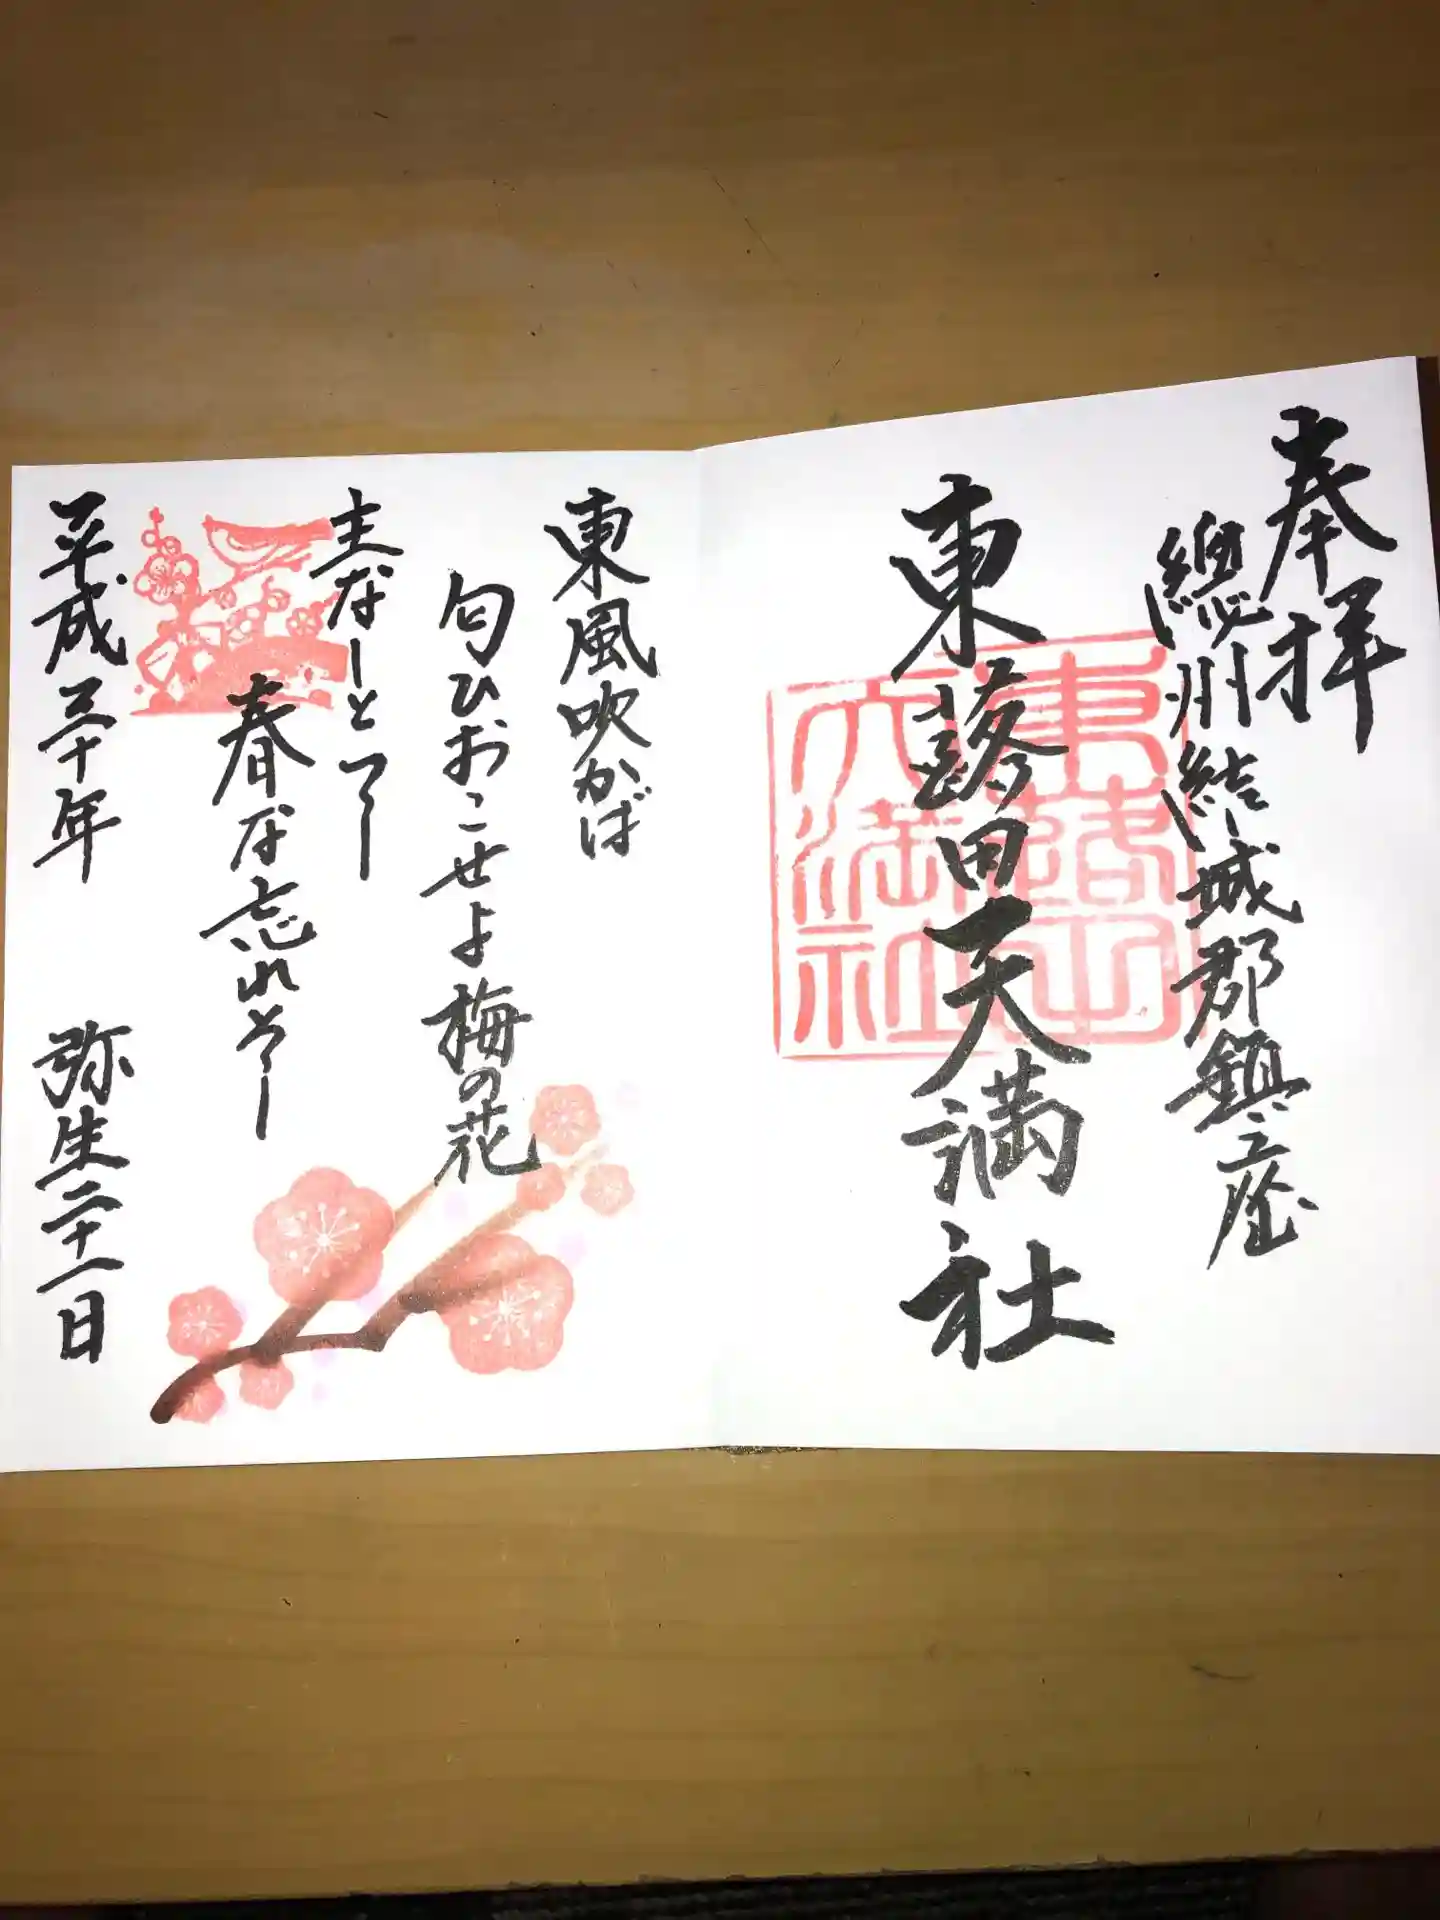 奉拝
總州結城郡鎮座
東蕗田天満社
東蕗田
天満社
東風吹かば
匂ひおこせよ梅の花
主なしとて
春な忘れそ
平成三十年 弥生二十一日